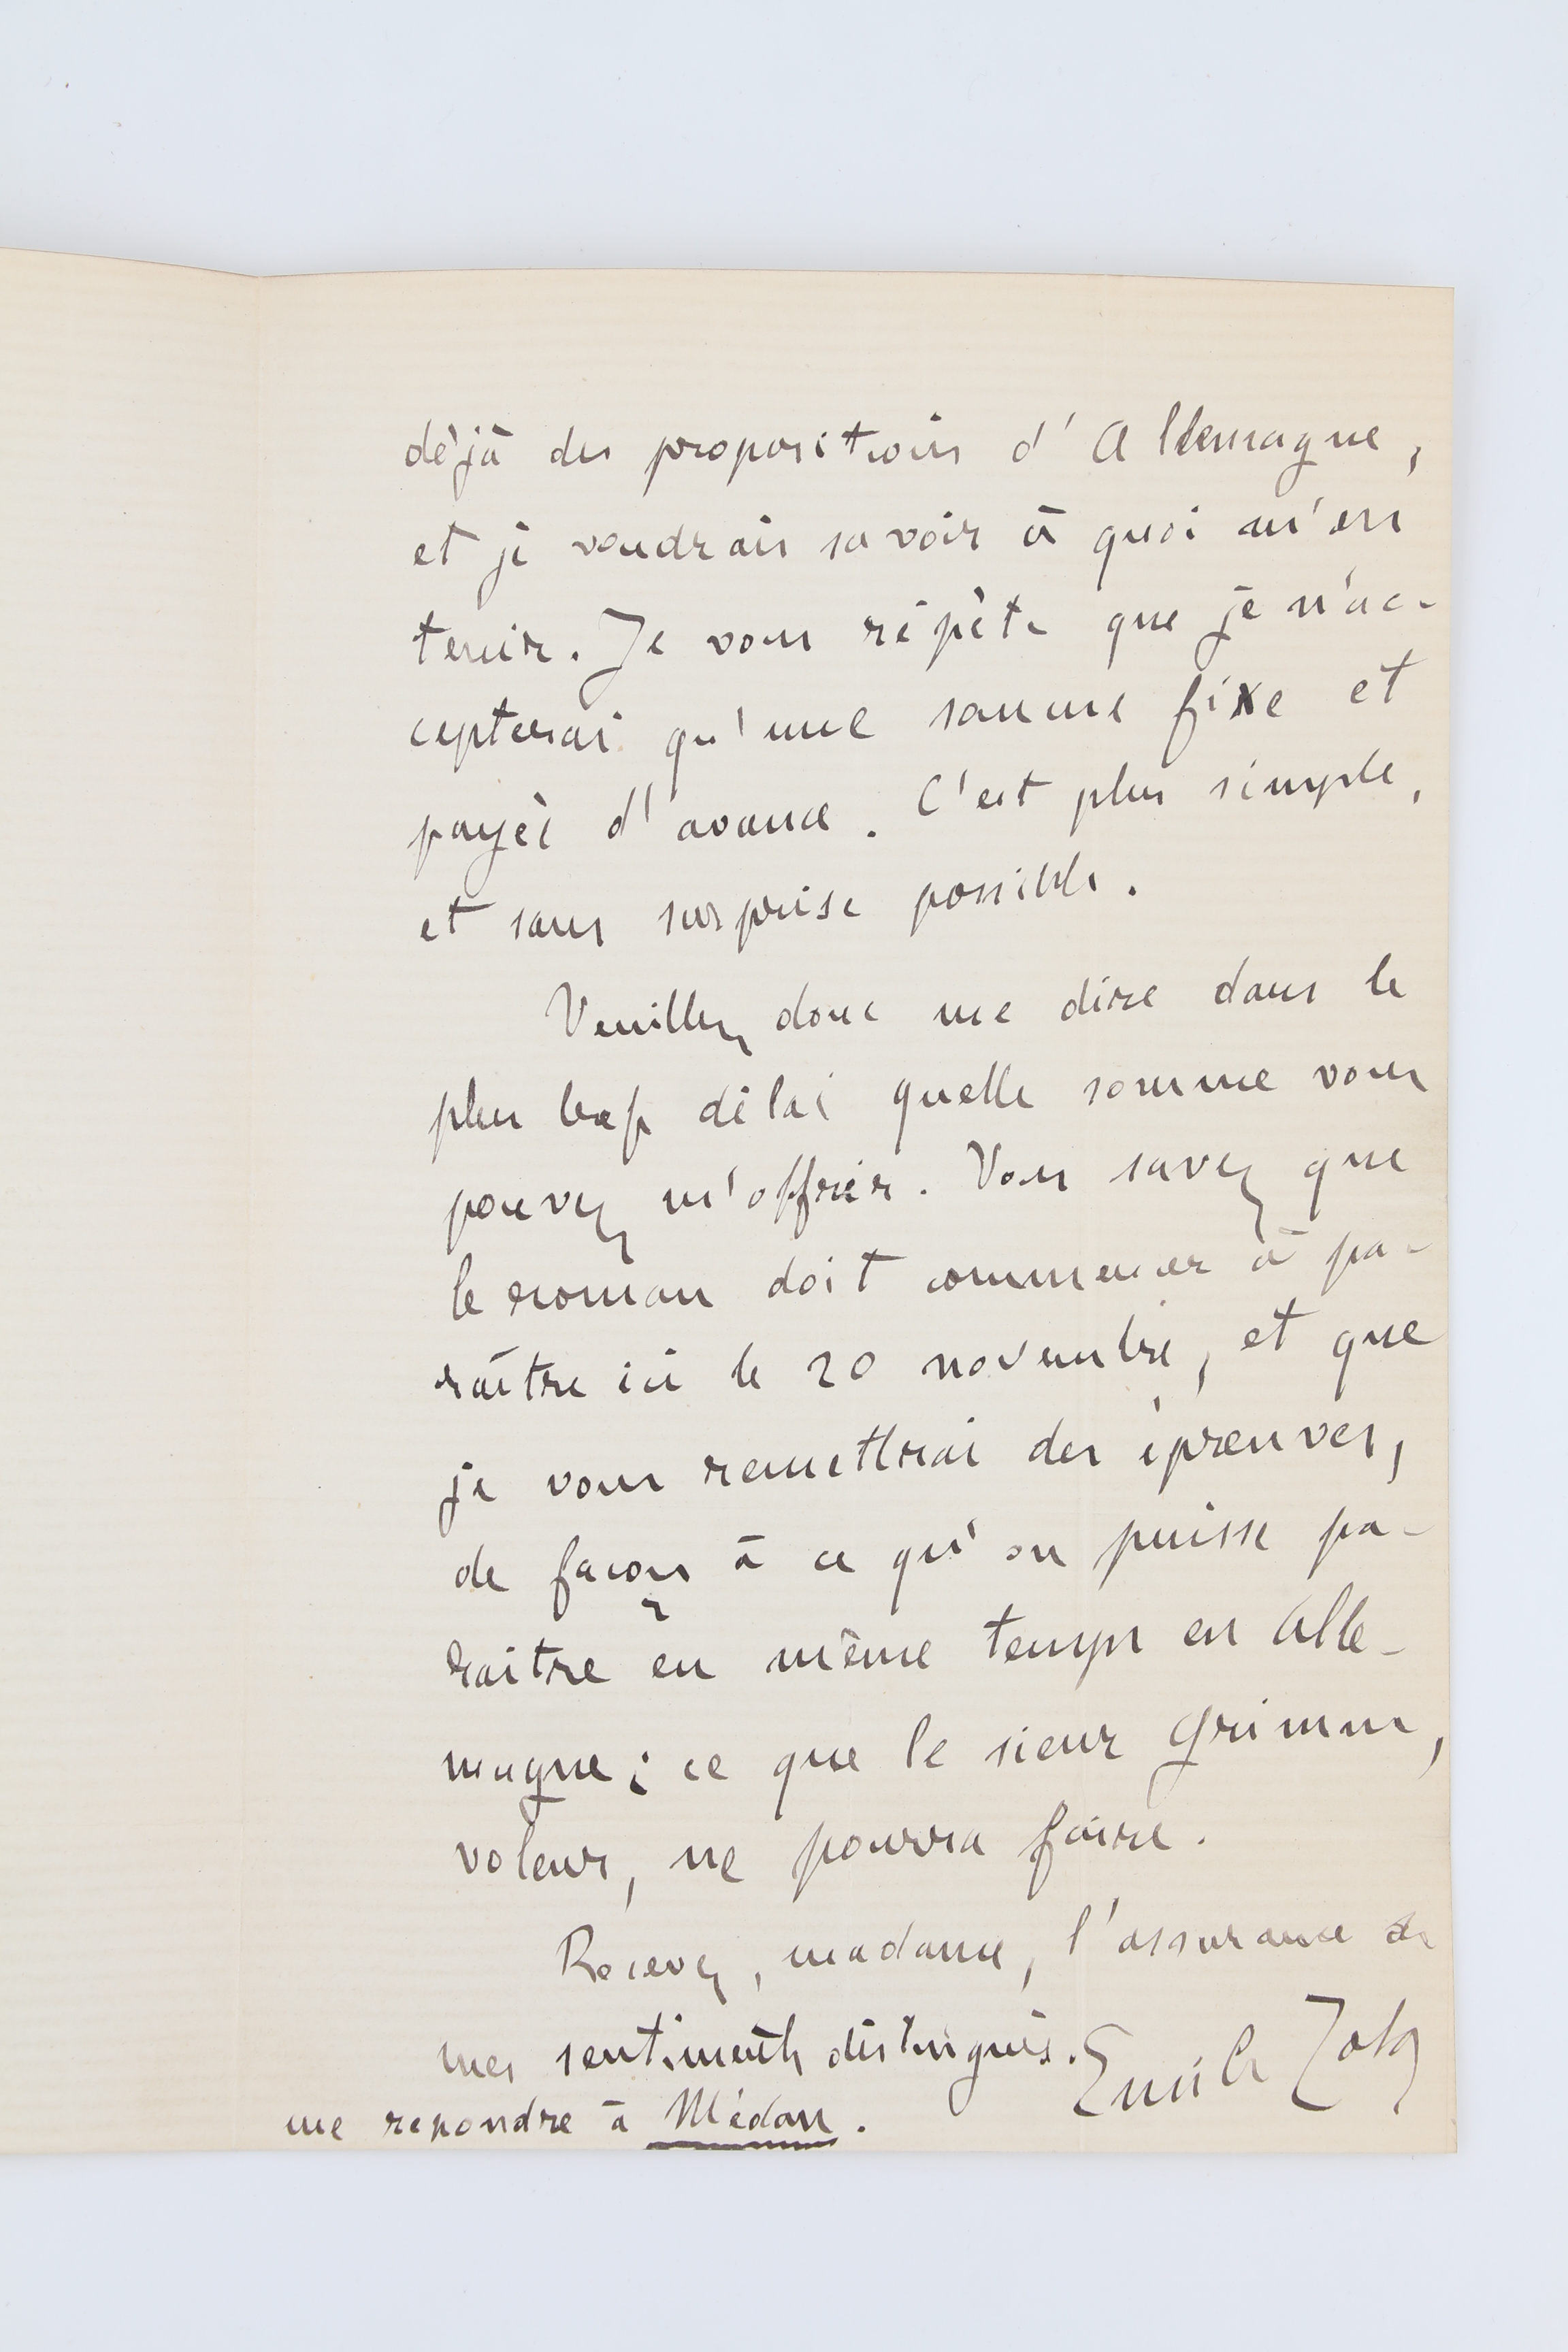 déjà des propositions d'Allemagne,
et je voudrais savoir à quoi m'en
tenir. Je vous répète que je n'ac-
cepterai qu'une somme fixe et
payée d'avance. C'est plus simple,
et sans surprise possible.
Veuillez donc me dire dans le
plus bref délai quelle somme vous
pouvez m'offrir. Vous savez que
le roman doit commencer à pa-
raître ici le 20 novembre, et que
je vous remettrai des épreuves,
de façon à ce qu'on puisse pa-
raitre en même temps en Alle-
magne ; ce que le sieur Grimm,
voleur, ne pourra faire.
Recevez, madame, l'assurance de
mes sentiments distingués.
Emile Zola
me repondre à Médan.